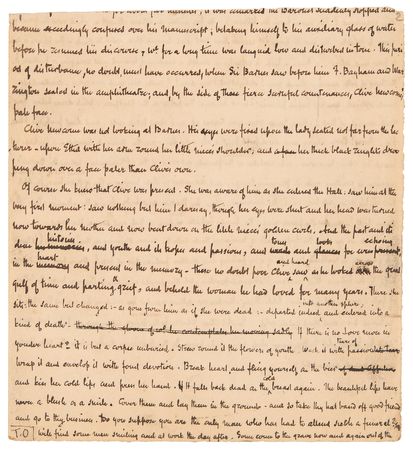 it was remarked the Baronet suddenly stopped and
became exceedingly confused over his manuscript, betaking himself to his auxiliary glass of water
before he resumed his discourse, wh. for a long time was languid low and disturbed in tone. This peri
od of disturbance, no doubt, must have occurred, when Sir Barnes saw before him F. Bayham and War
rington seated in the amphitheatre; and, by the side of those fierce scornful countenances, Clive Newcome's
pale face.
Clive Newcome was not looking at Barnes. His eyes were fixed upon the lady seated not far from the lec
turer - upon Ethel with her arm round her little niece's shoulder; and her thick black ringlets droo
ping down over a face paler than Clive's own.
Of course she knew that Clive was present. She was aware of him as she entered the Hall. saw him at the
very first moment: saw nothing but him I daresay, though her eyes were shut and her head was turned
now towards her mother and now bent down on the little niece's golden curls. And the past and its
dear histories, and youth and its hopes and passions, and tones and looks for ever echoing
in the heart and present in the memory - these no doubt poor Clive saw and heard as he looked across the great
gulf of time and parting, grief, and beheld the woman he had loved for many years. There she
sits: the same but changed: as gone from him as if she were dead: - departed indeed into another sphere, and entered into a
kind of death. If there is no Love more in
yonder heart, it is but a corpse unburied. Strew round it the flowers of youth. Wash it with tears of passion.
Wrap it and envelop it with fond devotion. Break heart and fling yourself on the bier
and kiss her cold lips and press her hand. It falls back dead on the cold breast again. The beautiful lips have
never a blush or a smile. Cover them and lay them in the ground - and so take thy hat band off good friend
and go to thy business. Do you suppose you are the only man who has had to attend such a funeral? You
T.O
will find some men smiling and at work the day after. Some come to the grave now and again out of the